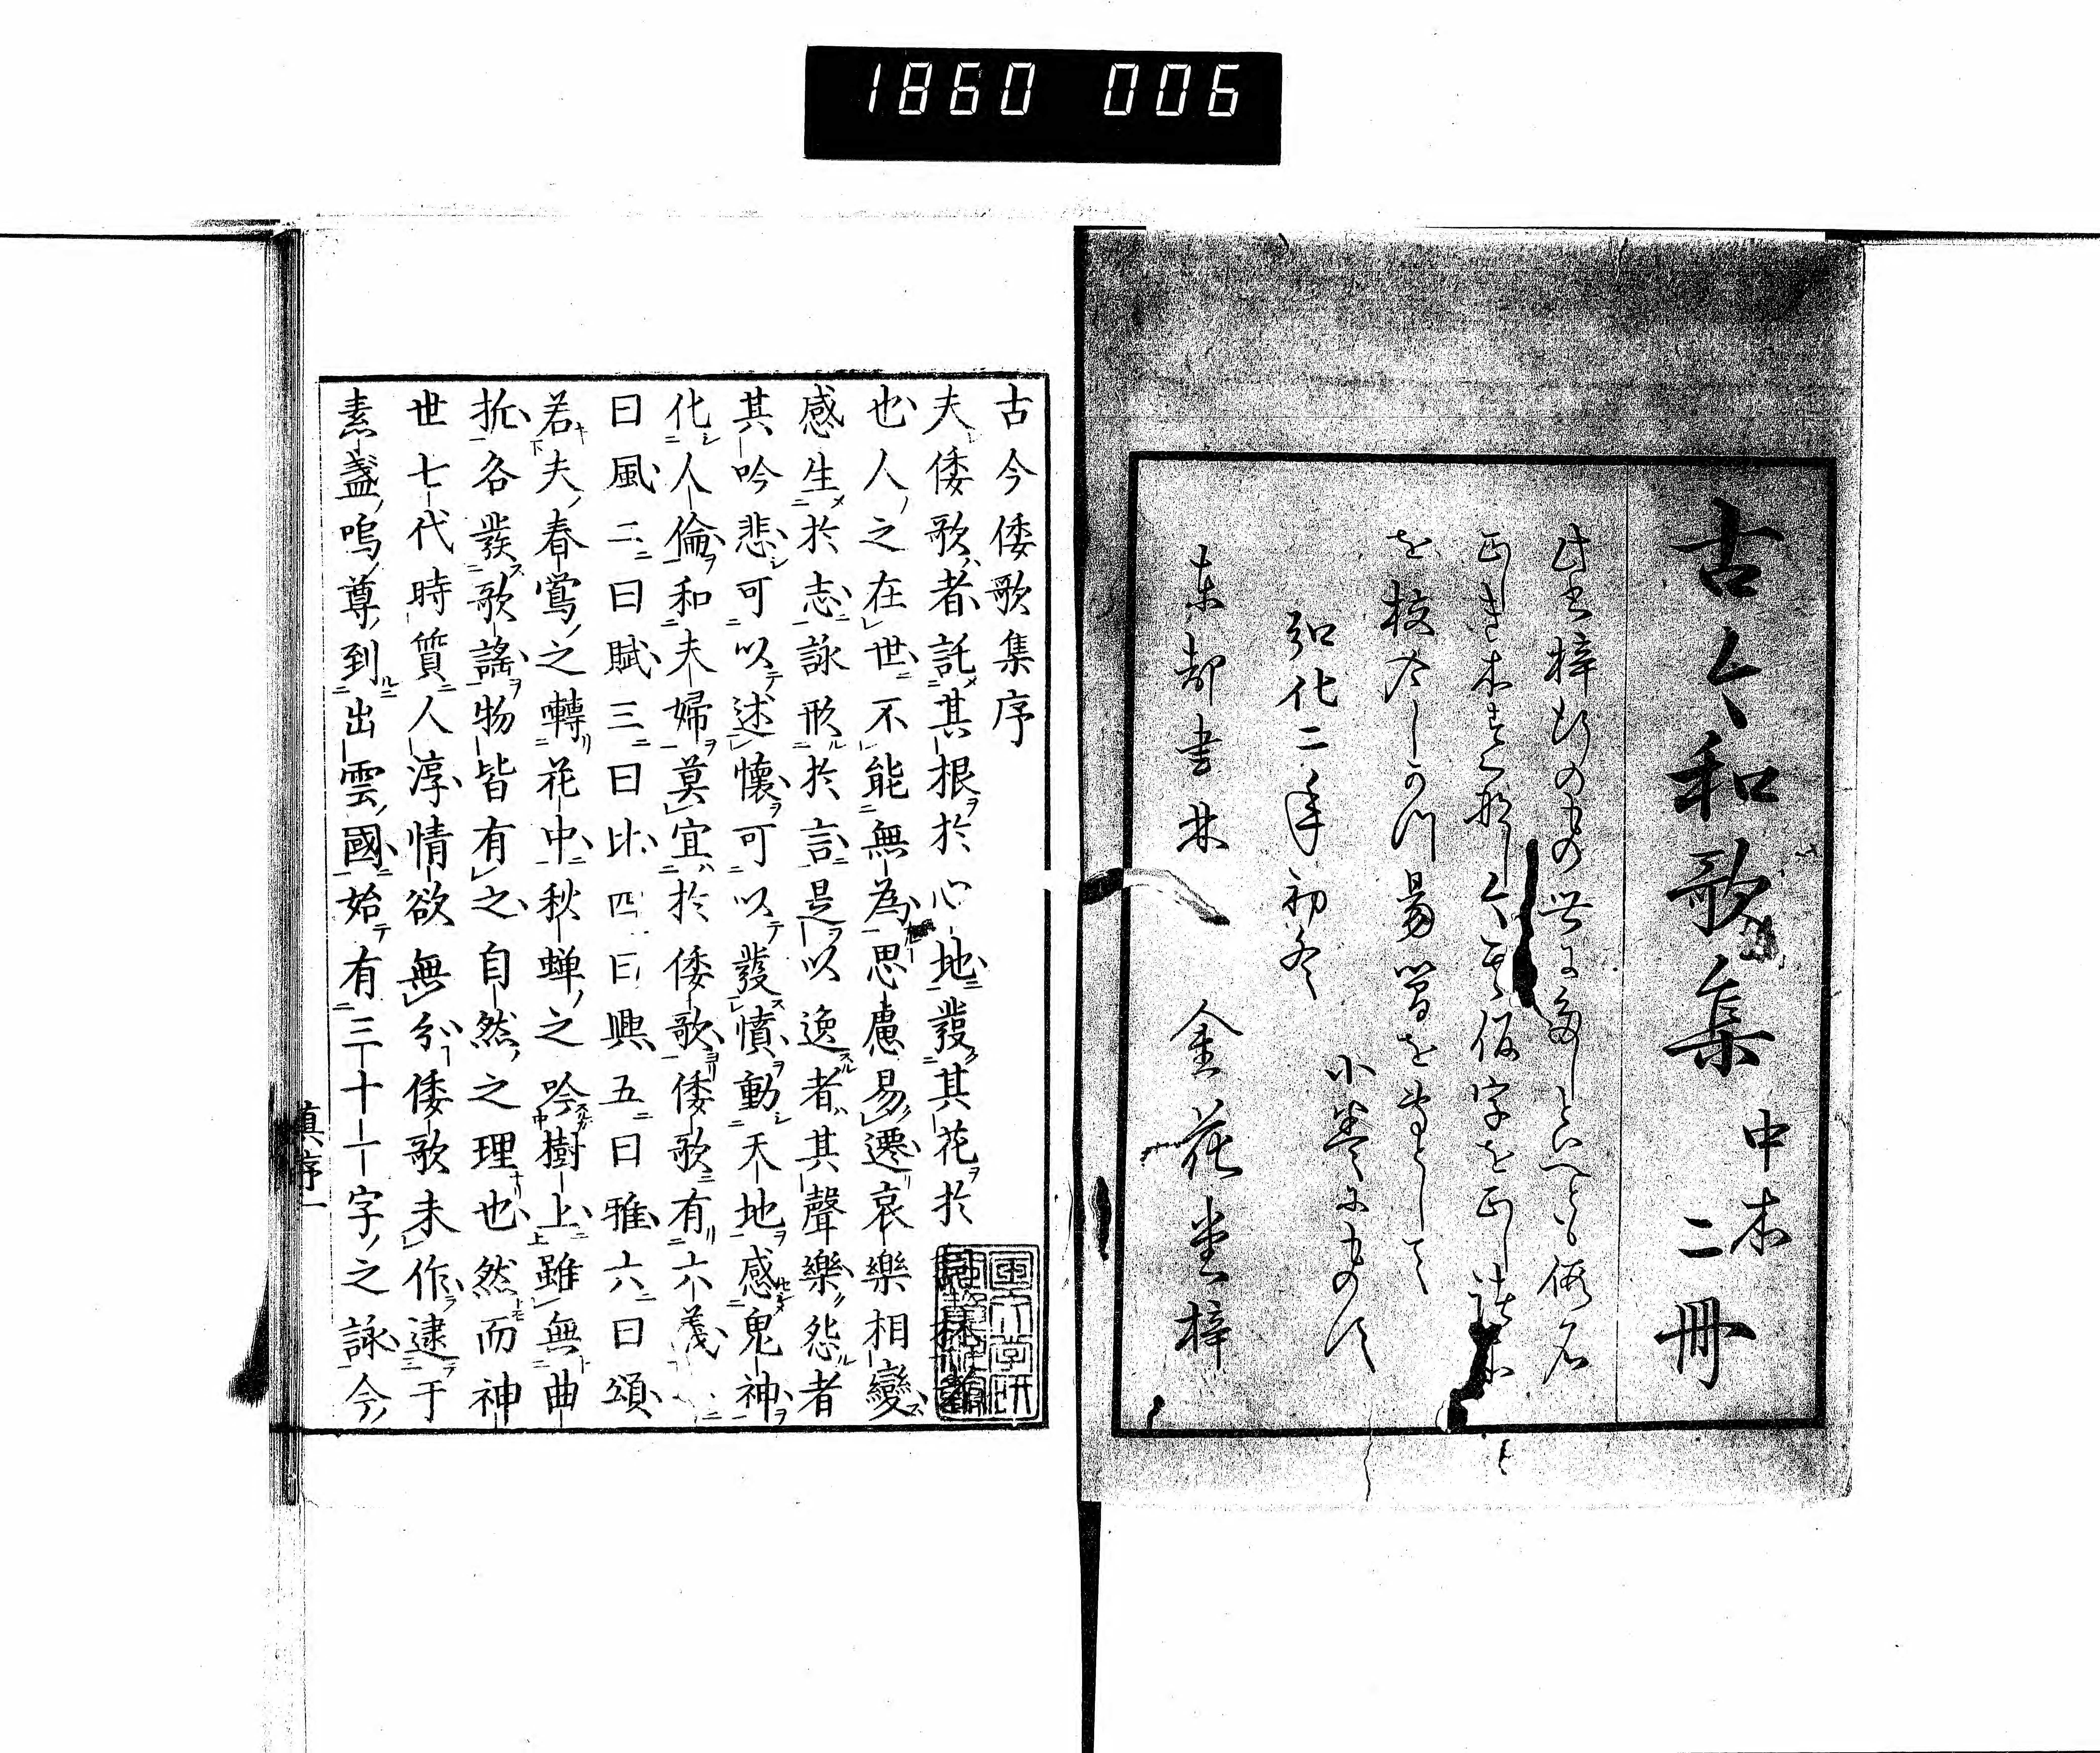 1860 006
古今和歌集 中本 二冊
此書梓行のもの世に多しといへども仮名
正しき本すくなし今其仮字を正し諸本
を校合し
小巻にものす
弘化二年初冬
東都書林 金花堂梓
古今倭歌集序
夫倭歌者託其根於心地發其花於
也人之在世不能無為思慮易遷哀樂相變
感生於志詠形於言是以逸者其聲樂怨者
其吟悲可以述懷可以發憤動天地感鬼神
化人倫和夫婦莫宜於倭歌倭歌有六義
曰風二曰賦三曰比四曰興五曰雅六曰頌
若夫春鶯之囀花中秋蝉之吟樹上雖無曲
折各發歌謠物皆有之自然之理也然而神
世七代時質人淳情欲無分倭歌未作逮于
素盞嗚尊到出雲國始有三十一字之詠今
真序一